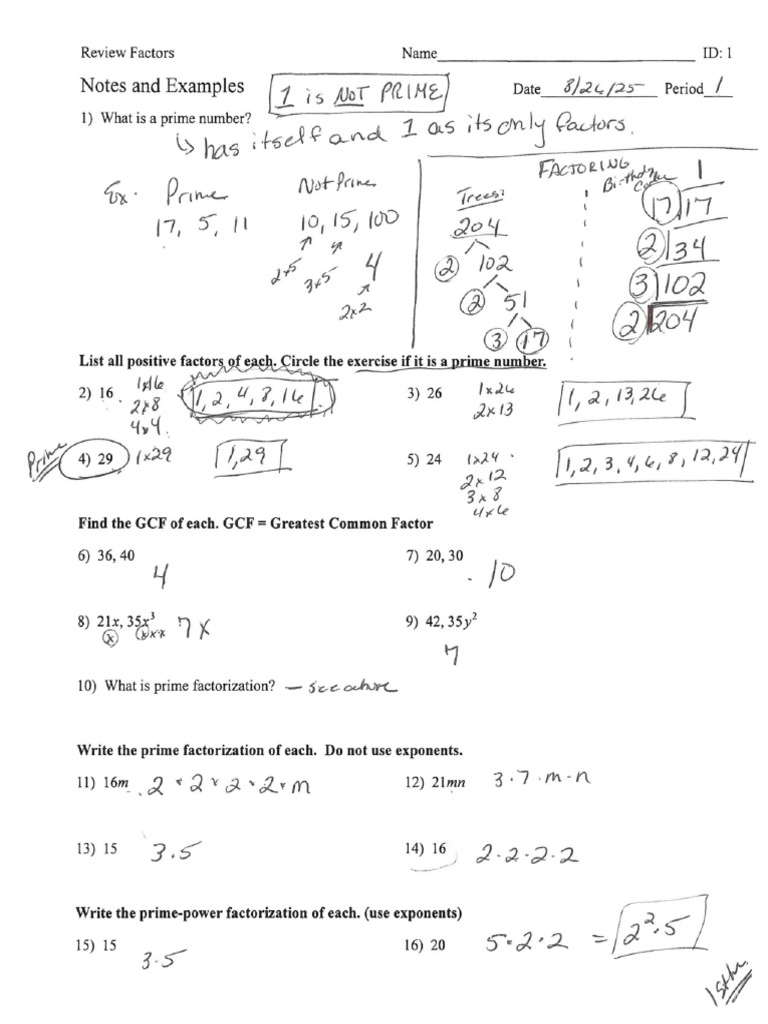 Review Factors Name ID: 1
Notes and Examples 1 is NOT PRIME Date 8/26/25 Period 1
1) What is a prime number?
↳ has itself and 1 as its only factors.
Ex. Prime Not Prime
17, 5, 11 10, 15, 100
2x5 3x5 4
2x2
FACTORING
Trees: Birthday Cake
204
2 102
2 51
3 17
1
17 17
2 34
3 102
2 204
List all positive factors of each. Circle the exercise if it is a prime number.
2) 16 1x16 1, 2, 4, 8, 16
2x8
4x4.
3) 26 1x26 1, 2, 13, 26
2x13
Prime 4) 29 1x29 1, 29
5) 24 1x24 1, 2, 3, 4, 6, 8, 12, 24
2x12
3x8
4x6
Find the GCF of each. GCF = Greatest Common Factor
6) 36, 40 4
7) 20, 30 10
8) 21x, 35x³ 7x
x x x x
9) 42, 35y² 7
10) What is prime factorization? — see above
Write the prime factorization of each. Do not use exponents.
11) 16m 2 * 2 * 2 * 2 * m
12) 21mn 3 · 7 · m · n
13) 15 3 · 5
14) 16 2 · 2 · 2 · 2
Write the prime-power factorization of each. (use exponents)
15) 15 3 · 5
16) 20 5 · 2 · 2 = 2² · 5